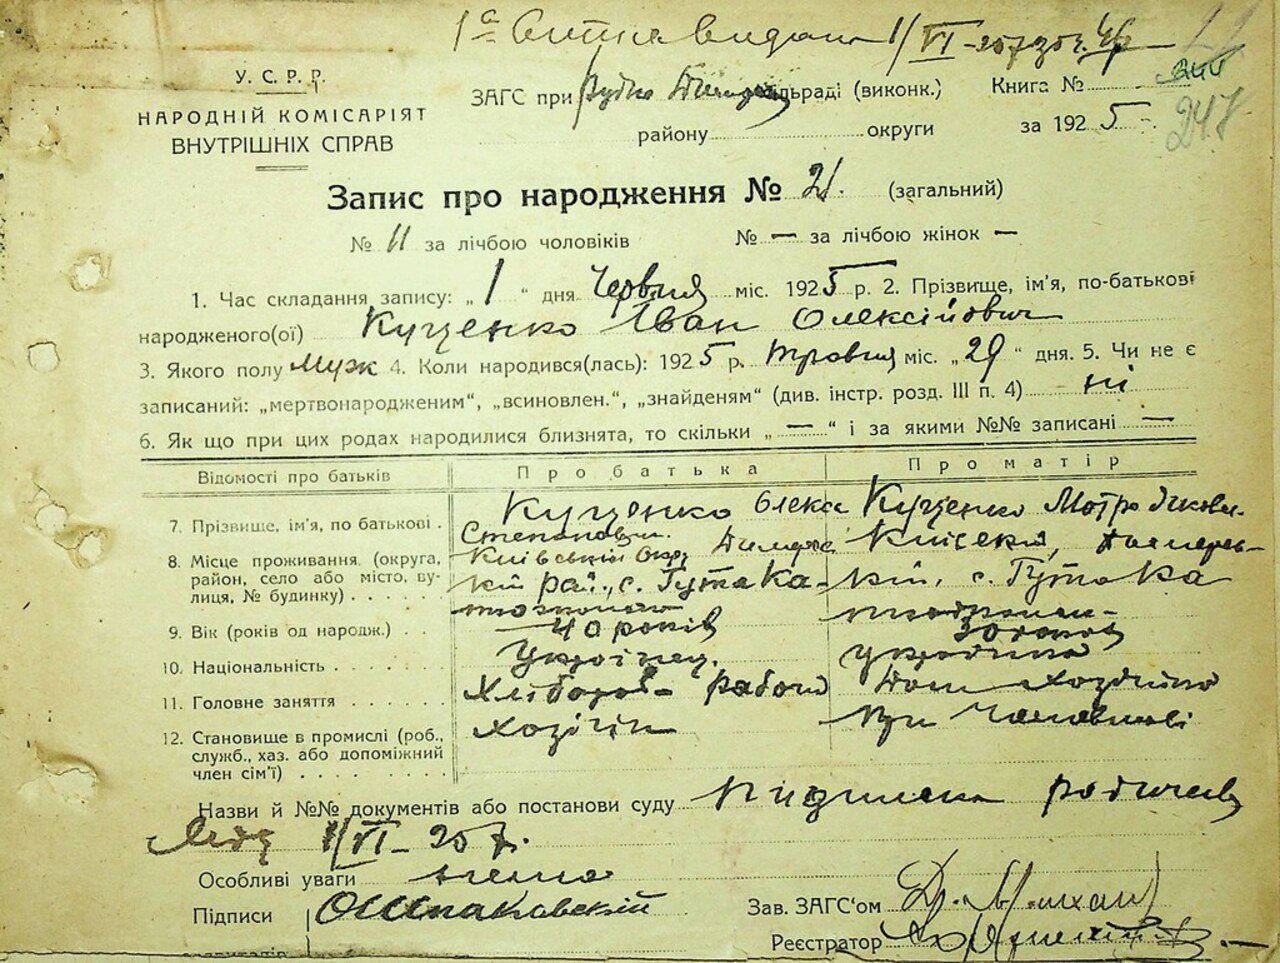 У. С. Р. Р.
НАРОДНІЙ КОМІСАРІЯТ
ВНУТРІШНІХ СПРАВ
ЗАГС при сільраді (виконк.) Книга №
району округи за 1925
247
Запис про народження № 21. (загальний)
№ 11 за лічбою чоловіків № — за лічбою жінок —
1. Час складання запису: „1“ дня Червня міс. 1925 р. 2. Прізвище, ім'я, по-батькові
народженого(ої) Куценко Іван Олексійович
3. Якого полу Муж 4. Коли народився(лась): 1925 р. травня міс. „29“ дня. 5. Чи не є
записаний: „мертвонародженим“, „всиновлен.“, „знайденям“ (див. інстр. розд. III п. 4) ні
6. Як що при цих родах народилися близнята, то скільки „—“ і за якими №№ записані —
Відомості про батьків Про батька Про матір
7. Прізвище, ім'я, по батькові . Куценко Олекса Степанович. Куценко Мотря
8. Місце проживання (округа, район, село або місто, вулиця, № будинку) . . . . . Київський Окр. рай., с. Гута Ка- с. Гута Ка
9. Вік (років од народж.) . . 40 років 30 років
10. Національність . . . . . . . Українец. українка
11. Головне заняття . . . . . . Хлібороб-
12. Становище в промислі (роб., служб., хаз. або допоміжний член сім'ї) . . . . . . . . хозяїн при чоловікові
Назви й №№ документів або постанови суду родичів
1/VI—25 г.
Особливі уваги нема
Підписи ОШпаковскій Зав. ЗАГС'ом
Реєстратор